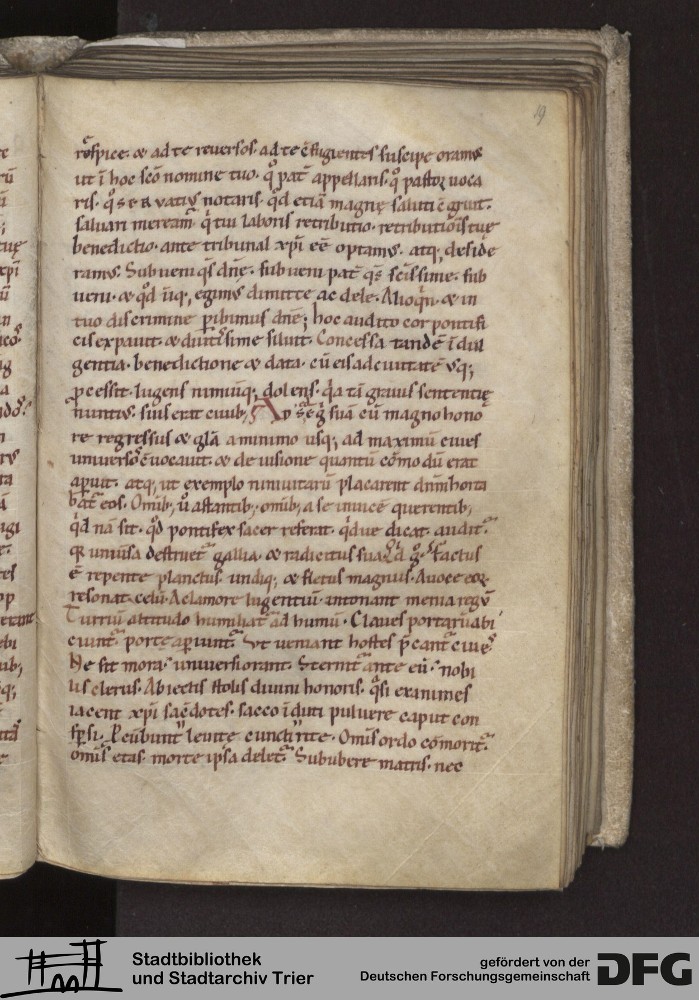 19
rōspice· & ad te reuersos· ad te c̄fugientes suscipe oramꝰ
ut ī hoc scō nomine tuo· q̊ pat̄ appellaris· q̊ pastor uoca
ris· q̊ seruatiꝰ notaris· qd etiā magnę saluti ē
saluari meream̄ q̓ tui laboris retributio· retributiōis tuę
benedictio· ante tribunal xp̄i eē optamꝰ· atq; deside
ramꝰ· Subueni qs̄ dn̄e· subueni pat̄ qs̄ sc̄issime· sub
ueni· & qd̊ iniq; egimꝰ dimitte ac dele· Alioqn̄ & in
tuo discrimine ꝑibimus dn̄e; hoc audito cor pontifi
cis expauit· & diutissime siluit· Concessa tandē īdul
gentia· benedictione & data· cū eis ad ciuitatē usq;
ꝓcessit· lugens nimiūq; dolens· q̓a tā grauis sententię
nuntius· suis erat ciuib;
suā cū magno hono
re regressus & glā a minimo usq; ad maximū ciues
uniuersos c̄uocauit· & de uisione quantū cōmodū erat
aꝑuit· atq; ut exemplo niniuitarū placarent dn̄m horta
bat̄ eos· Omīb; u̓ astantib; omīb; a se inuicē querentib;
qd̓ nā sit· qd̊ pontifex sacer referat· qd̓ue dicat· audit̄
qr uniu̓sa destruet̄ gallia· & radicitus Factus
ē repente planctus undiq; & fletus magnus· A uoce eoꝝ
resonat celū· A clamore lugentiū· intonant menia regū
Turriū altitudo humiliat̄ ad humū· Claues portarū abi
ciunt̄ portę aꝑiunt̄· Vt ueniant hostes p̄cant̄ ciues
Ne sit mora· uniuersi orant· Sternit̄ ante eū· nobi
lis clerus· Abiectis stolis diuini honoris· q̓si exanimes
iacent xp̄i sac̄dotes· sacco īduti puluere caput con
sꝑsi· ꝓcūbunt leuite cuncti rite· Omīs ordo cōmorit̄
omīs etas· morte ip̄sa delet̄· Sub ubere matris· nec
Stadtbibliothek
und Stadtarchiv Trier
gefördert von der
Deutschen Forschungsgemeinschaft
DFG